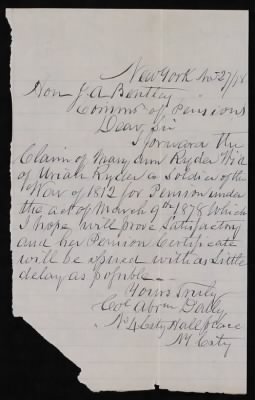 New York Nov 27/78
Hon J. A. Bentley
Comms of Pensions
Dear Sir
I forward the
Claim of Mary Ann Ryder Wid
of Uriah Ryder a Soldier of the
War of 1812 for Pension under
the act of March 9th 1878 Which
I hope will prove Satisfactory
and her Pension Certificate
will be issued with as little
delay as possible
Yours Truly
Col Abram Dally
No 4 City Hall Place
NY City